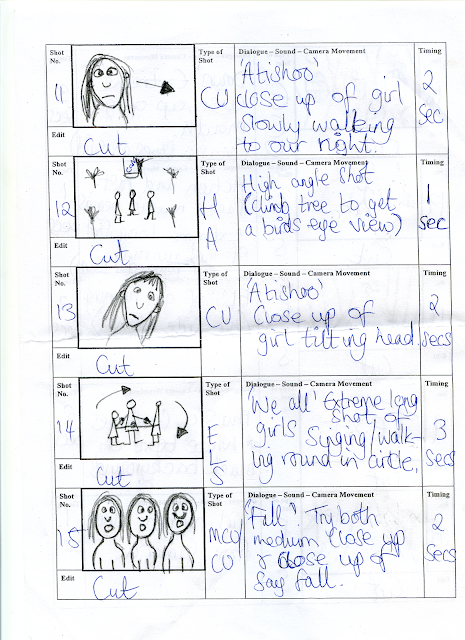 Shot No.
Type of Shot
Dialogue – Sound – Camera Movement
Timing
11
CU
'Atishoo'
Close up of girl
slowly walking
to our right.
2
sec
Edit
Cut
Shot No.
Type of Shot
Dialogue – Sound – Camera Movement
Timing
12
H
A
High angle shot
(climb tree to get
a birds eye view)
1
sec
Edit
Cut
Shot No.
Type of Shot
Dialogue – Sound – Camera Movement
Timing
13
CU
'Atishoo'
Close up of
girl tilting head
2
secs
Edit
Cut
Shot No.
Type of Shot
Dialogue – Sound – Camera Movement
Timing
14
E
L
S
'We all' Extreme long
shot of
girls singing/walk-
ing round in circle.
3
secs
Edit
Cut
Shot No.
Type of Shot
Dialogue – Sound – Camera Movement
Timing
15
MCU/
CU
'Fall'. Try both
medium close up
& close up of
say fall.
2
secs
Edit
Cut